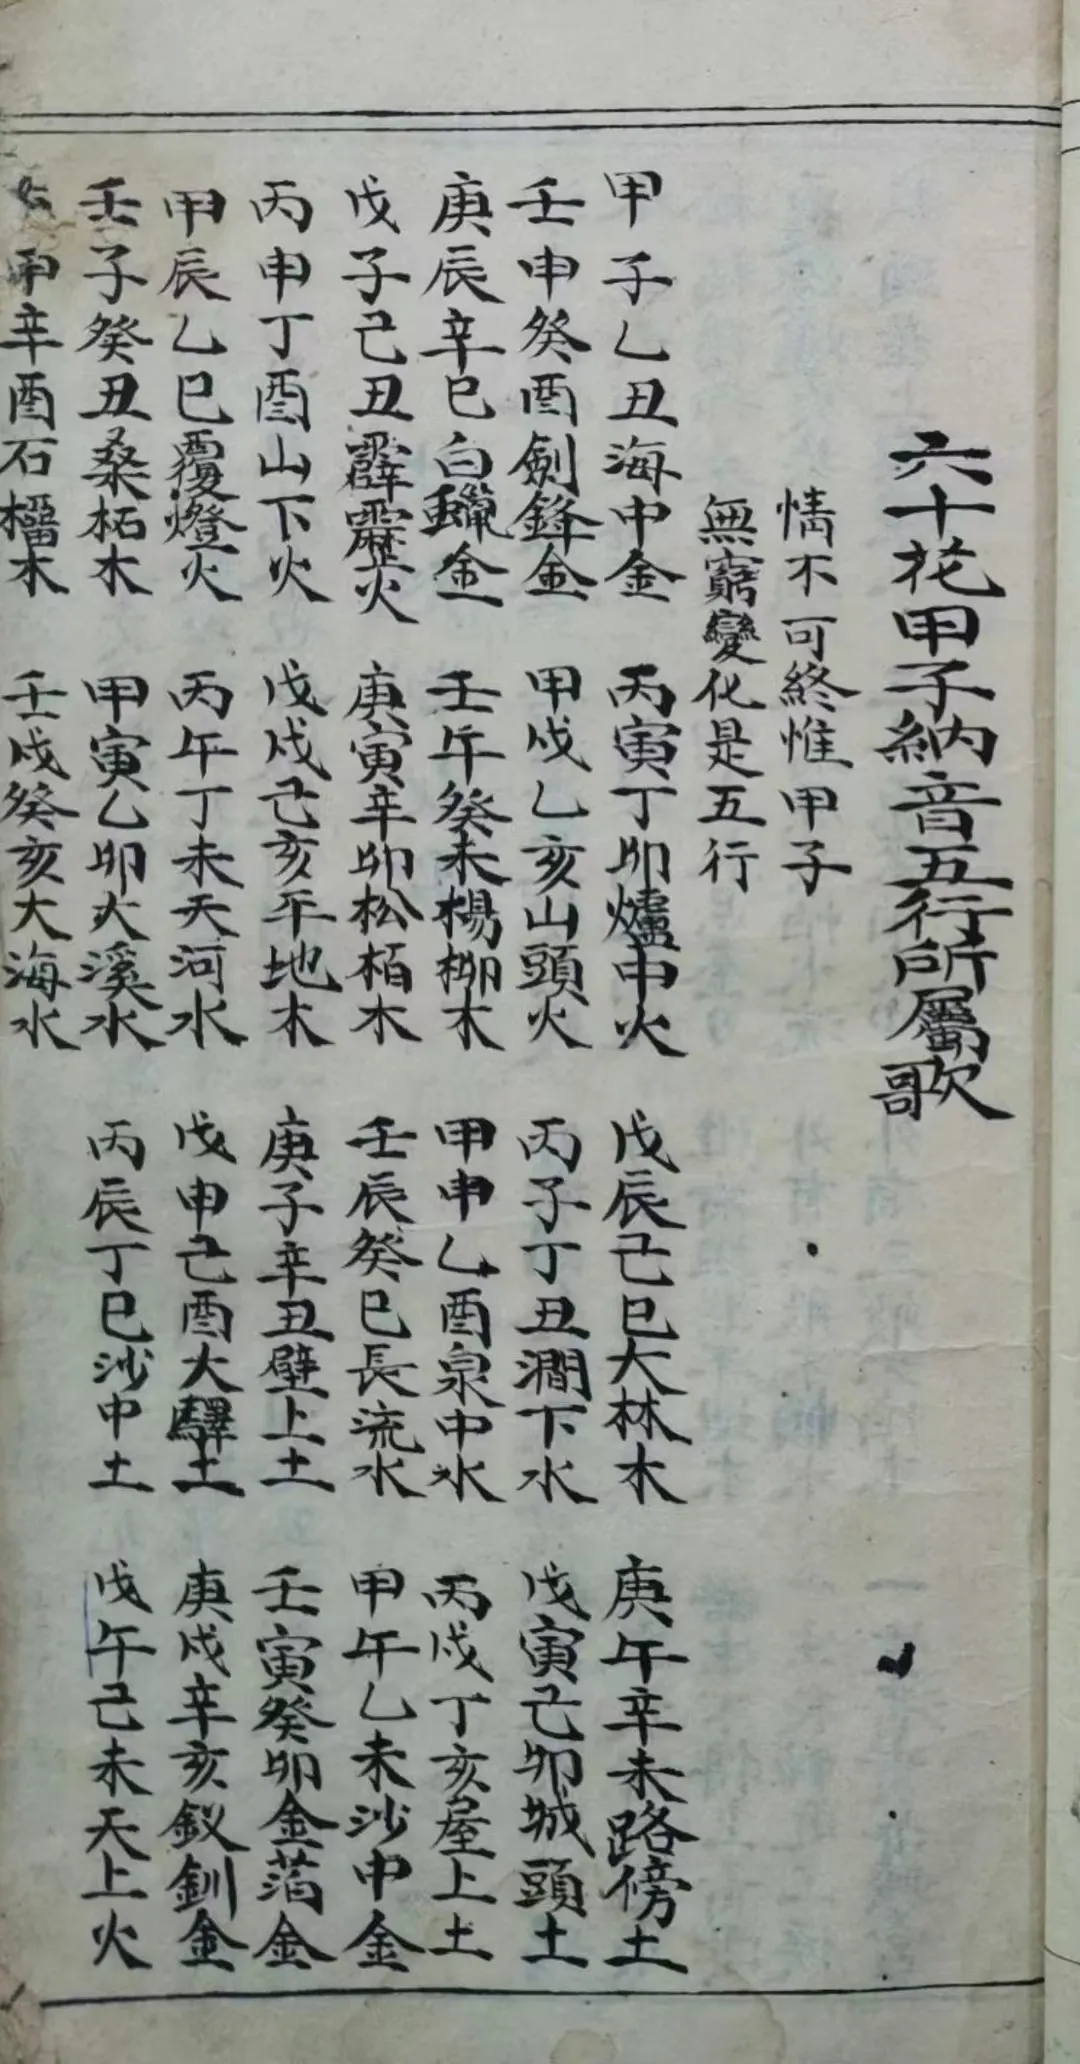 六十花甲子納音五行所屬歌
情不可終惟甲子
無窮變化是五行
甲子乙丑海中金 丙寅丁卯爐中火 戊辰己巳大林木 庚午辛未路傍土
壬申癸酉劍鋒金 甲戌乙亥山頭火 丙子丁丑澗下水 戊寅己卯城頭土
庚辰辛巳白鑞金 壬午癸未楊柳木 甲申乙酉泉中水 丙戌丁亥屋上土
戊子己丑霹靂火 庚寅辛卯松栢木 壬辰癸巳長流水 甲午乙未沙中金
丙申丁酉山下火 戊戌己亥平地木 庚子辛丑壁上土 壬寅癸卯金箔金
甲辰乙巳覆燈火 丙午丁未天河水 戊申己酉大驛土 庚戌辛亥釵釧金
壬子癸丑桑柘木 甲寅乙卯大溪水 丙辰丁巳沙中土 戊午己未天上火
申辛酉石榴木 壬戌癸亥大海水